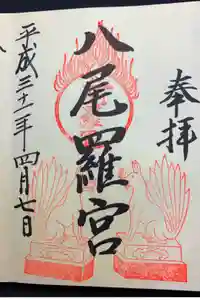 奉拝
八尾羅宮
平成三十一年四月七日